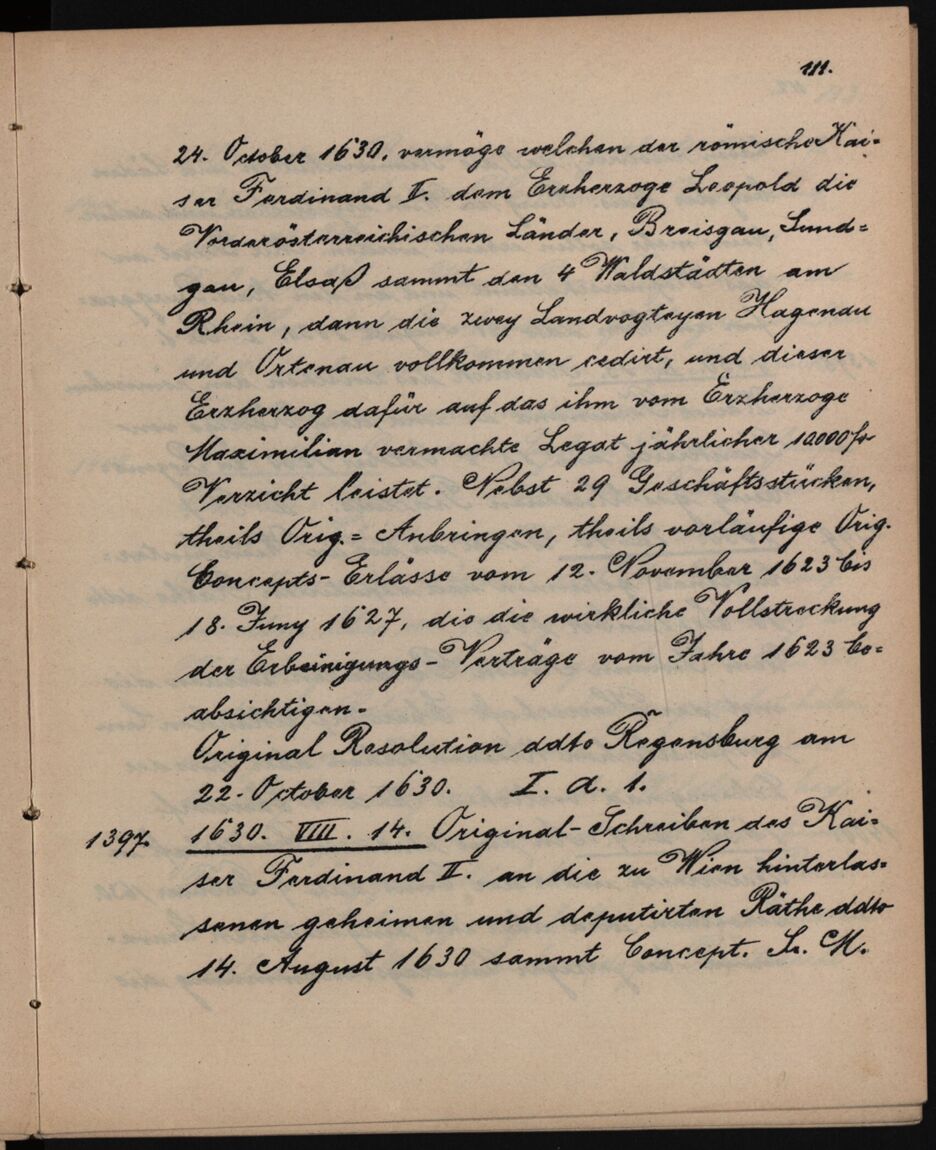 111.
24. October 1630. vermöge welchen der römische Kai=
ser Ferdinand II. dem Erzherzoge Leopold die
Vorderösterreichischen Länder, Breisgau, Sund=
gau, Elsaß sammt den 4 Waldstädten am
Rhein, dann die zwey Landvogteyen Hagenau
und Ortenau vollkommen cedirt, und dieser
Erzherzog dafür auf das ihm vom Erzherzoge
Maximilian vermachte Legat jährlicher 10000 fr
Verzicht leistet. Nebst 29 Geschäftsstücken,
theils Orig.= Anbringen, theils vorläufige Orig.
Concepts-Erlässe vom 12. November 1623 bis
18. Juny 1627, die die wirkliche Vollstreckung
der Erbeinigungs-Verträge vom Jahre 1623 be=
absichtigen.
Original Resolution ddto Regensburg am
22. October 1630. I. a. 1.
1397. 1630. VIII. 14. Original-Schreiben des Kai=
ser Ferdinand II. an die zu Wien hinterlas=
senen geheimen und deputirten Räthe ddto
14. August 1630 sammt Concept. Sr. M.